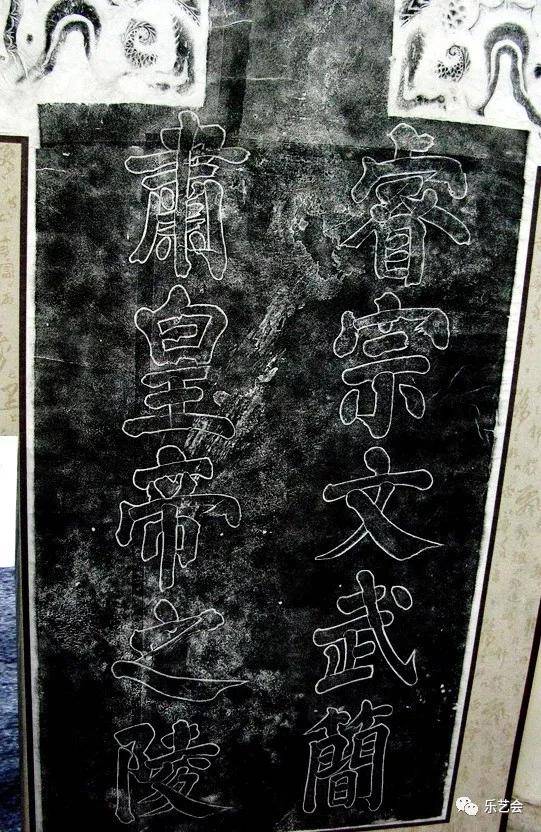 睿宗文武簡
肅皇帝之陵
乐艺会